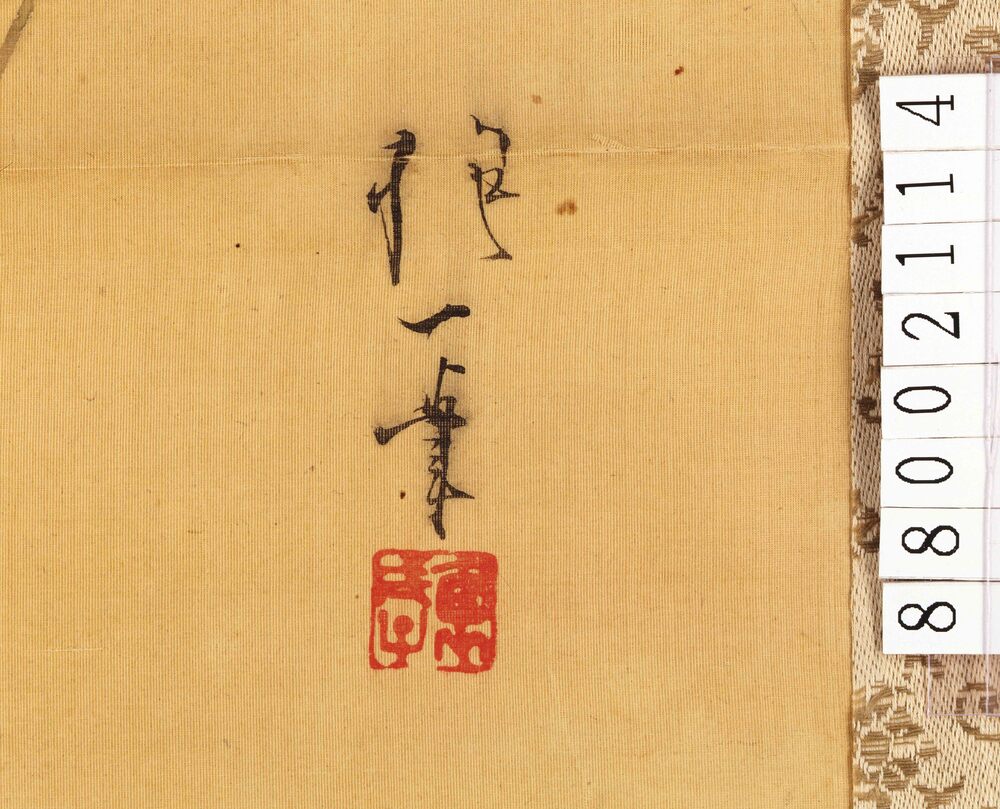 抱一筆
88002114